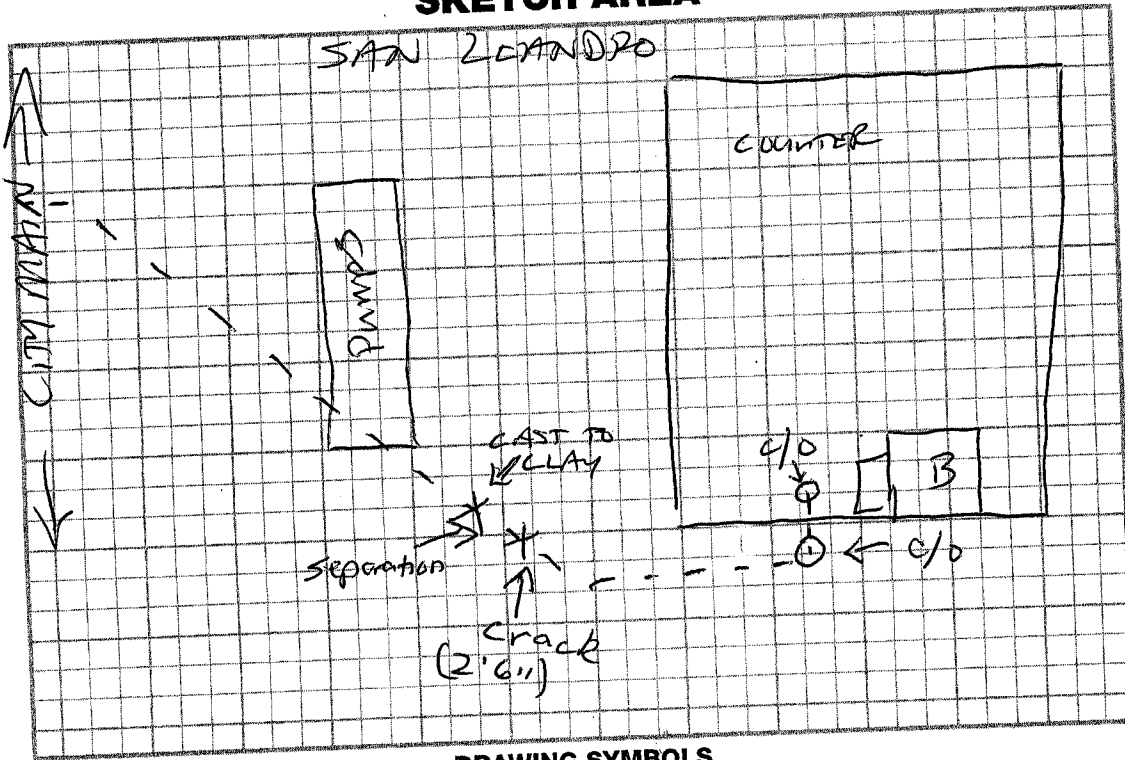 SKETCH AREA
SAN LEANDRO
COUNTER
CITY MAIN
Pumps
CAST TO
CLAY
c/o
B
Separation
c/o
Crack
(2'6")
DRAWING SYMBOLS